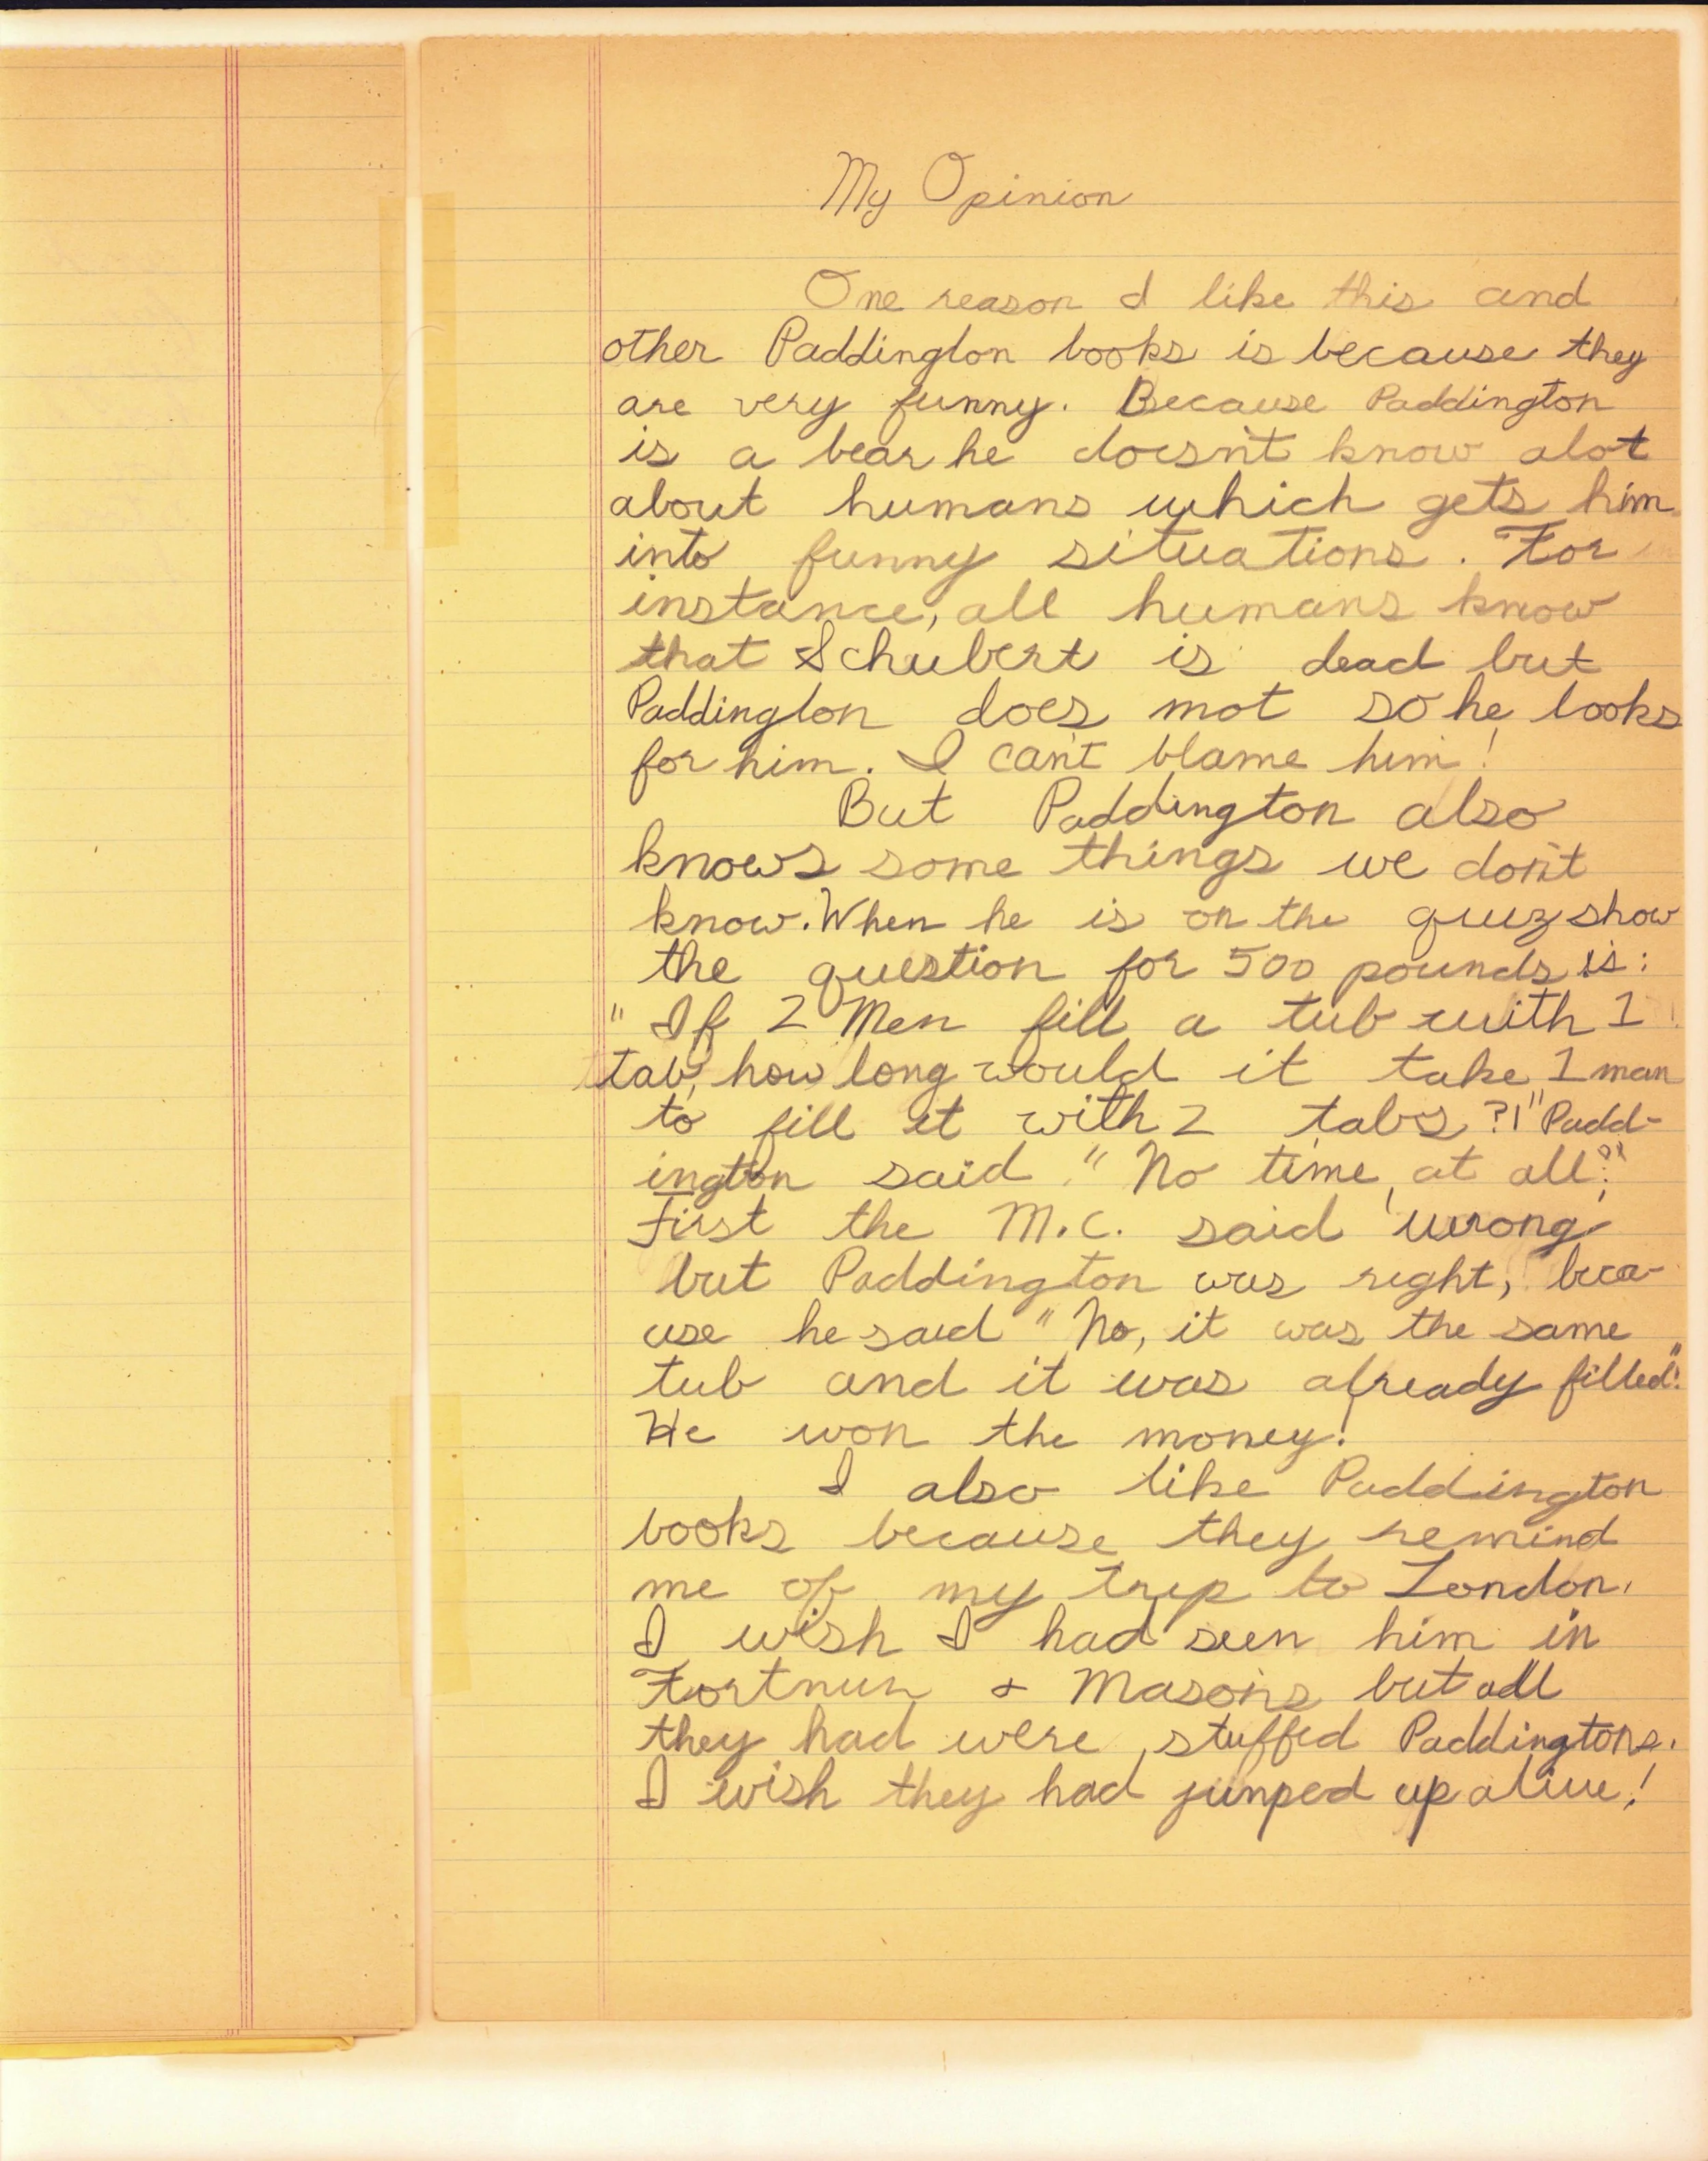 My Opinion
One reason I like this and
other Paddington books is because they
are very funny. Because Paddington
is a bear he doesn't know alot
about humans which gets him
into funny situations. For
instance, all humans know
that Schubert is dead but
Paddington does not so he looks
for him. I can't blame him!
But Paddington also
knows some things we don't
know. When he is on the quiz show
the question for 500 pounds is:
"If 2 Men fill a tub with 1
tab, how long would it take 1 man
to fill it with 2 tabs?!" Padd-
ington said "No time, at all."
First the M.C. said 'wrong'
but Paddington was right, beca-
use he said "No, it was the same
tub and it was already filled".
He won the money!
I also like Paddington
books because they remind
me of my trip to London.
I wish I had seen him in
Fortnum & Mason's but all
they had were stuffed Paddingtons.
I wish they had jumped up alive!